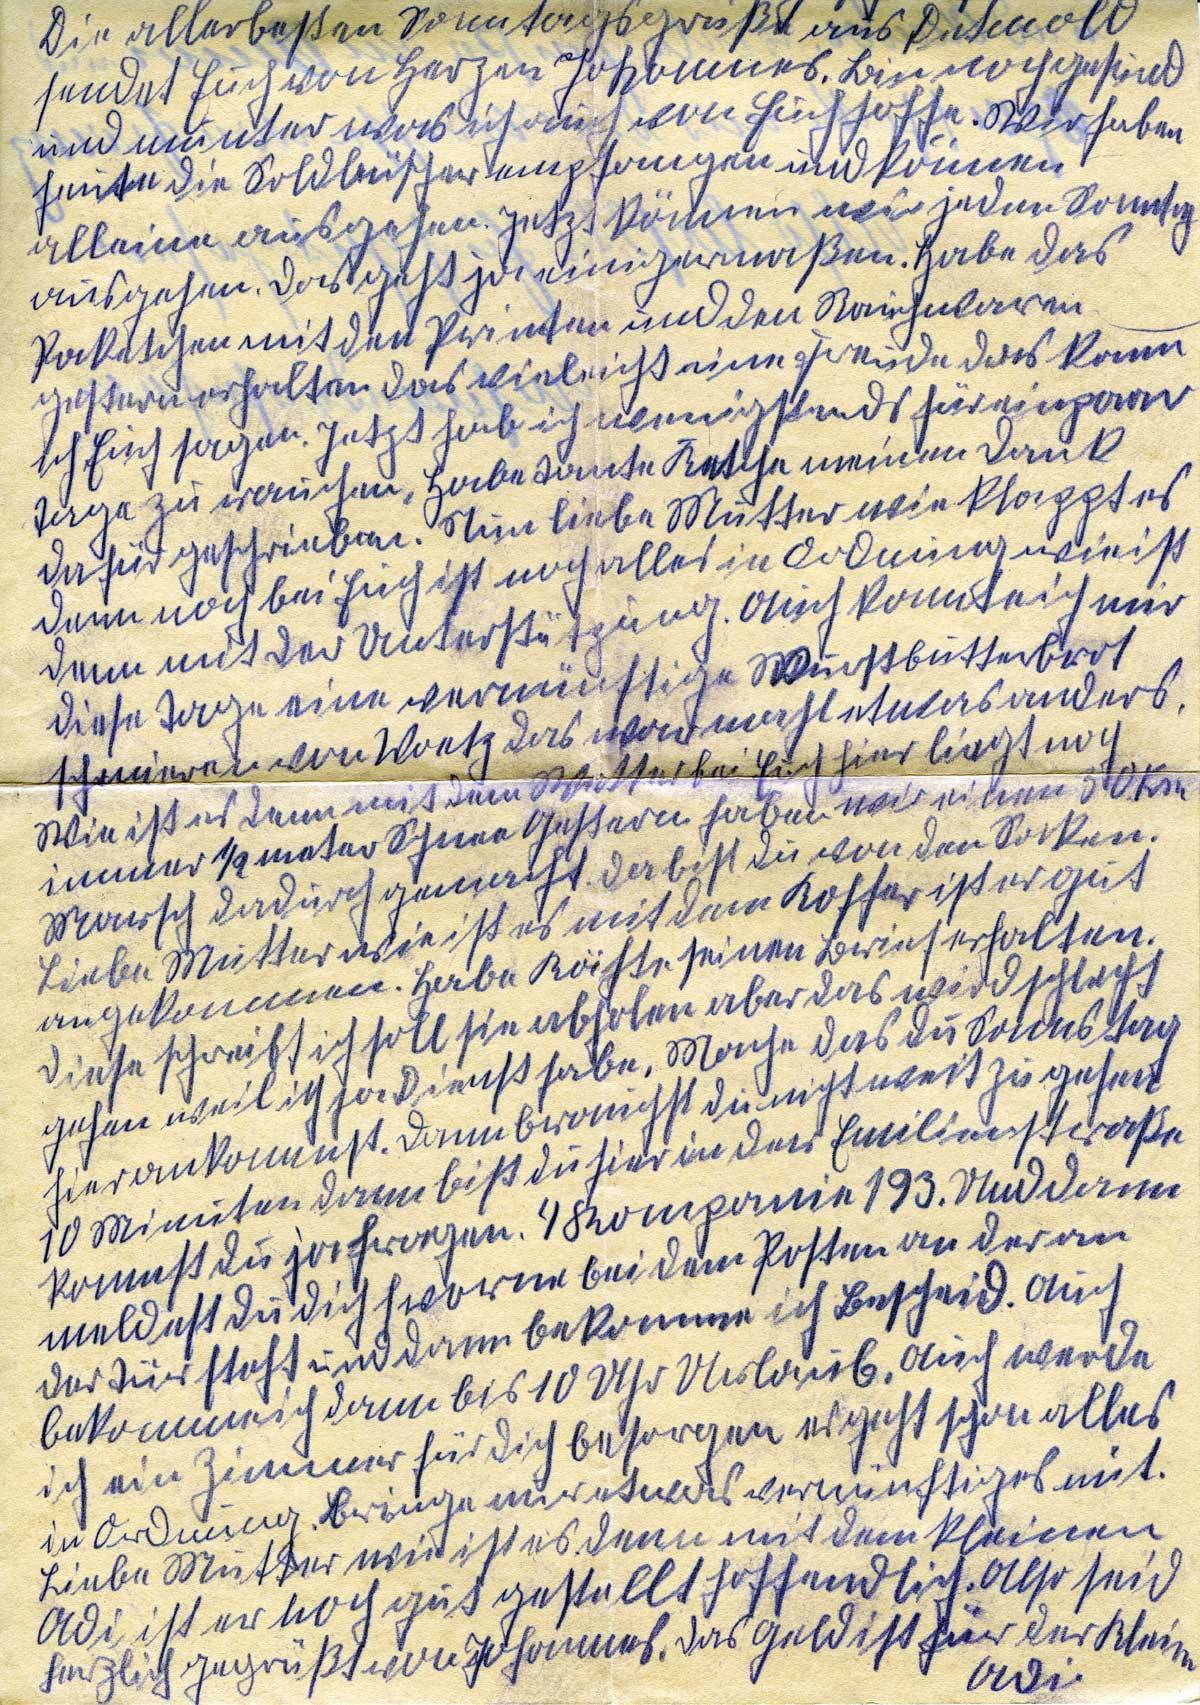 Die allerbesten Sonntagsgrüße aus Detmold
sendet Euch von Herzen Johannes. Bin noch gesund
und munter was ich auch von Euch hoffe. Wir haben
heute die Soldbücher empfangen und können
alleine ausgehen. Jetzt können wir jeden Sonntag
ausgehen. Das geht ja einigermaßen. Habe das
Paketchen mit den Printen und den Rauchwaren
gestern erhalten das vieleicht eine Freude das kann
ich Euch sagen. Jetzt hab ich wenigstends für ein paar
Tage zu rauchen. Habe Tante Ketche meinen Dank
dafür geschrieben. Nun liebe Mutter wie klappt es
denn noch bei Euch ist noch alles in Ordnung wie ist
denn mit der Unterstützung. Auch konnte ich mir
diese Tage eine vernünftige Wurstbutterbrot
schmieren von das war mahl etwas anders.
Wie ist es denn mit dem Wetter bei Euch hier liegt noch
immer 1/2 meter Schnee Gestern haben wir einen 30 Km
Marsch dadurch gemacht. da bist du von den Socken.
Liebe Mutter wie ist es mit dem Koffer ist er gut
angekommen. Habe seinen Brief erhalten.
diese schreibt ich soll sie abholen aber das wird schlecht
gehen weil ich ja Dienst habe. Mache das du Sonnstag
hier ankommst. Dann brauchst du nicht weit zu gehen
10 Minuten dann bist du hier in der Emilienstraße
kommst du ja fragen. 4 Kompanie 193. Und dann
meldest du dich vorne bei dem Posten an der an
der Tür steht und dann bekomme ich Bescheid. Auch
bekomme ich dann bis 10 Uhr Urlaub. Auch werde
ich ein Zimmer für dich besorgen es geht schon alles
in Ordnung. Bringe mir etwas vernünftiges mit.
Liebe Mutter wie ist es denn mit dem kleinen
Adi, ist er noch gut gestellt hoffendlich. Also seid
herzlich gegrüßt von Johannes. Das Geld ist für der Klein
Adi